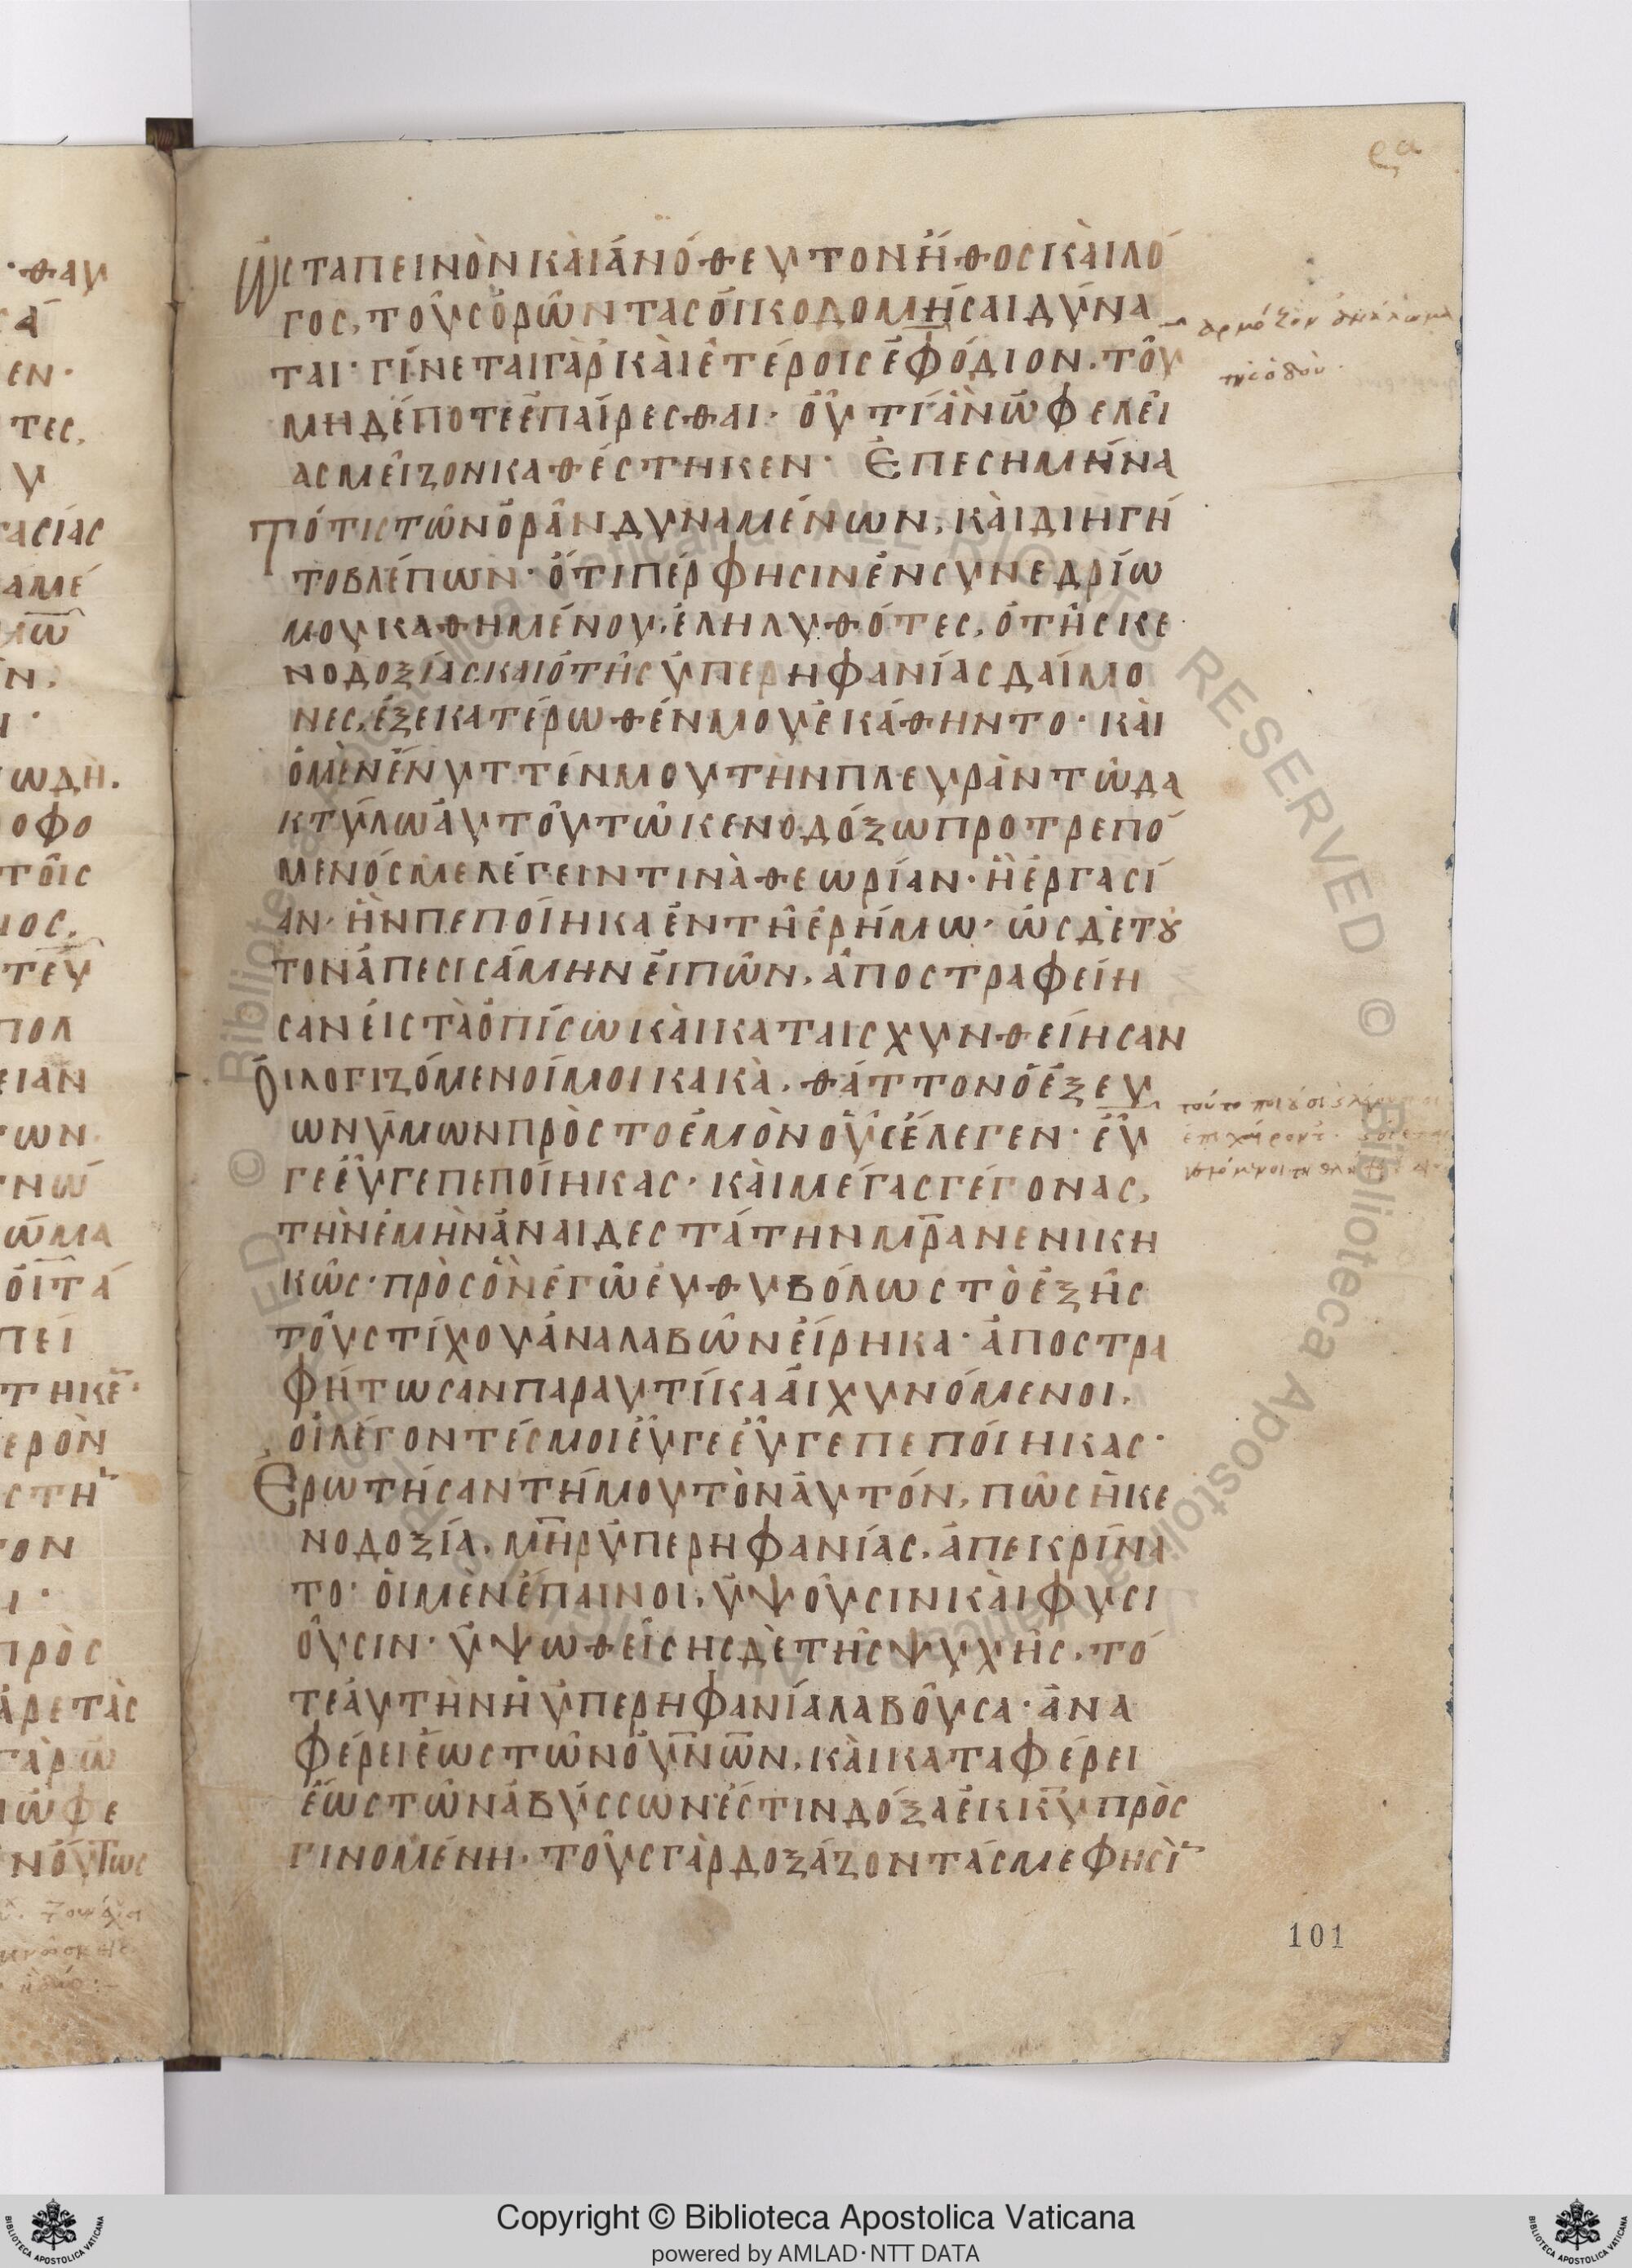 ὡς ταπεινὸν καὶ ἀνόθευτον ἦθος καὶ λό
γος, τοὺς ὁρῶντας οἰκοδομῆσαι δύνα
ται· γίνεται γὰρ καὶ ἑτέροις ἐφόδιον, τοῦ
μηδέποτε ἐπαίρεσθαι· οὗ τί ἂν ὠφελεί
ας μεῖζον καθέστηκεν· Ἐπεσημήνα
τό τις τῶν ὁρᾶν δυναμένων, καὶ διηγή
το βλέπων· ὅτιπέρ φησιν ἐν συνεδρίω
μου καθημένου, ἐληλυθότες, ὁ τῆς κε
νοδοξίας καὶ ὁ τῆς ὑπερηφανίας δαίμο
νες, ἐξ ἑκατέρωθέν μου ἐκάθηντο· καὶ
ὁ μὲν ἔνυττέν μου τὴν πλευρὰν τῶ δα
κτύλω αὐτοῦ τῶ κενοδόξω προτρεπό
μενός με λέγειν τινὰ θεωρίαν· ἢ ἐργασί
αν· ἣν πεποίηκα ἐν τῆ ἐρήμω· ὡς δὲ τȣ
τον ἀπεσισάμην εἰπών, ἀποστραφείη
σαν εἰς τὰ ὀπίσω καὶ καταισχυνθείησαν
οἱ λογιζόμενοί μοι κακὰ, θάττον ὁ ἐξ ευ
ωνύμων πρὸς τὸ ἐμὸν οὖς ἔλεγεν· εὖ
γε εὖγε πεποίηκας· καὶ μέγας γέγονας,
τὴν ἐμὴν ἀναιδεστάτην μ̅ρ̅α νενικη
κώς· πρὸς ὃν ἐγὼ εὐθυβόλως τὸ ἑξῆς
τοῦ στίχου ἀναλαβὼν εἴρηκα· ἀποστρα
φήτωσαν παραυτίκα αἰχυνόμενοι,
οἱ λέγοντές μοι εὖγε εὖγε πεποίηκας·
Ἐρωτήσαντή μου τὸν αὐτόν, πῶς ἡ κε
νοδοξία, μ̅η̅ρ ὑπερηφανίας, ἀπεικρίνα
το· οἱ μὲν ἔπαινοι, ὑψοῦσιν καὶ φυσι
οῦσιν· ὑψωθείσης δὲ τῆς ψυχῆς, τό
τε αὐτὴν ἡ ὑπερηφανία λαβοῦσα· ἀνα
φέρει ἕως τῶν ο̅υ̅ν̅ω̅ν, καὶ καταφέρει
ἕως τῶν ἀβύσσων ἔστιν δόξα ἐκ κ̅υ̅ προς
γινομένη· τοὺς γὰρ δοξάζοντάς με φησὶ̅
101
Copyright © Biblioteca Apostolica Vaticana
powered by AMLAD·NTT DATA